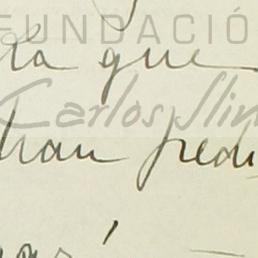 FUNDACIÓ
que
Carlos Slim
han pedi